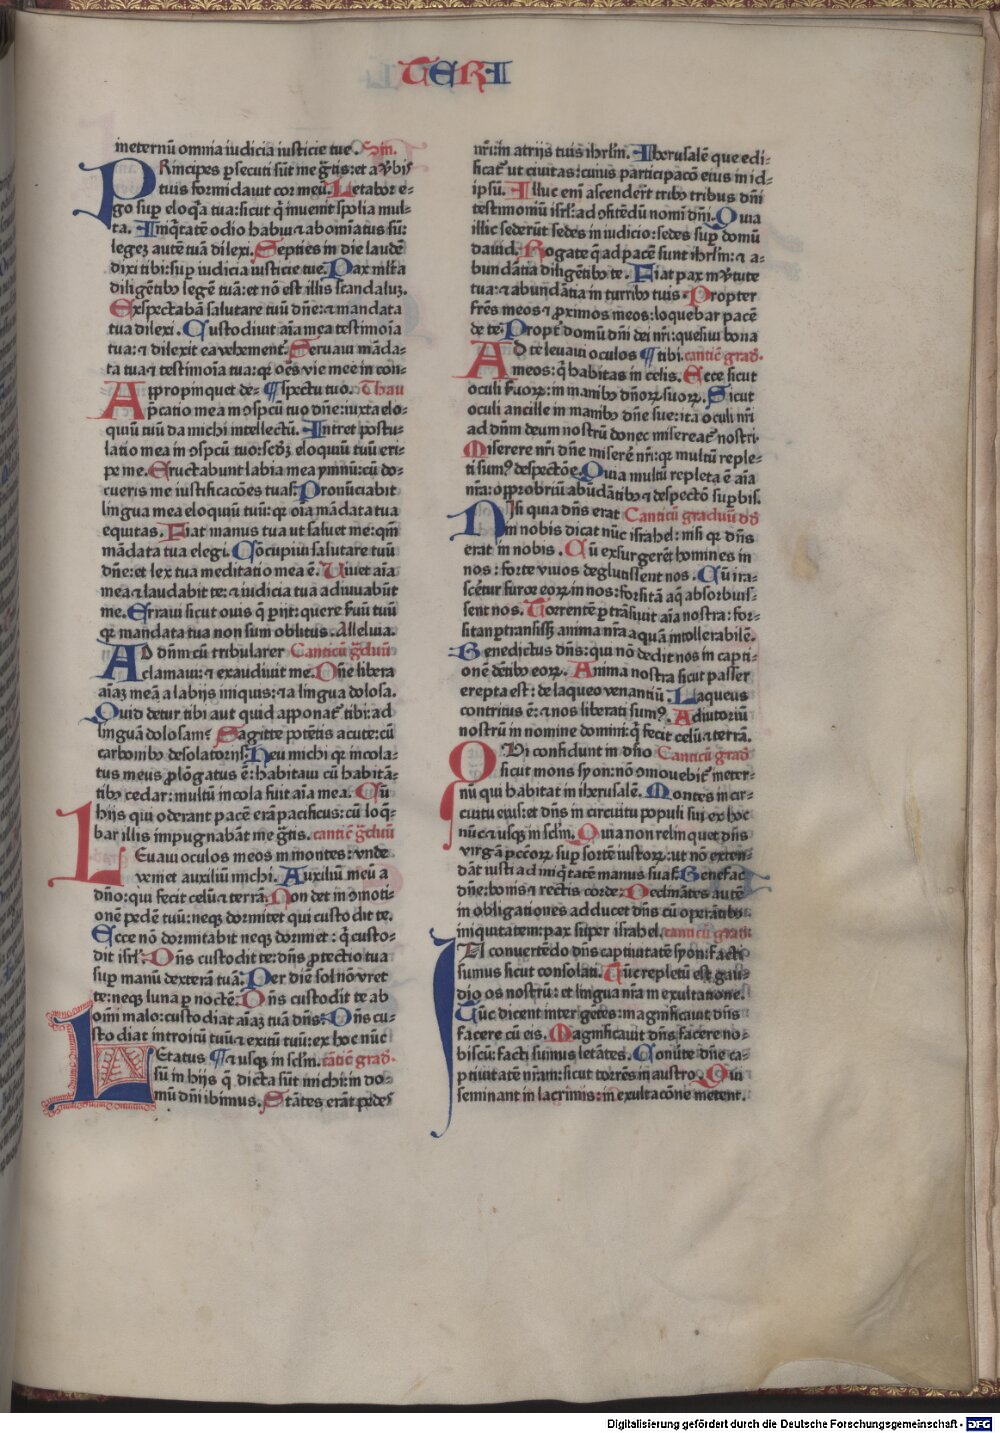 TERI
ineternū omnia iudicia iusticie tue. Sin.
PRincipes ꝑsecuti sūt me gͣtis: et a ỽbis
tuis formidauit cor meū. Letabor e⸗
go suꝑ eloq̄a tua: sicut q̇ inuenit spolia mul⸗
ta. Iniq̇tatē odio habui ⁊ abominatus sū:
legeꝫ autē tuā dilexi. Septies in die laudē
dixi tibi: suꝑ iudicia iusticie tue. Pax ml̄ta
diligētibꝰ legē tuā: et nō est illis scandaluꝫ.
Exspectabā salutare tuū dn̄e: ⁊ mandata
tua dilexi. Custodiuit aīa mea testimoīa
tua: ⁊ dilexit ea vehemēt͛. Seruaui māda⸗
ta tua ⁊ testimoīa tua: qꝛ oēs vie mee in con⸗
Appropinquet de⸗ ¶ spectu tuo. Thau
p̄catio mea ī ꝯspcū tuo dn̄e: iuxta elo⸗
quiū tuū da michi intellectū. Intret postu⸗
latio mea in ꝯspcū tuo: scd̄ꝫ eloquiū tuū eri⸗
pe me. Eructabunt labia mea ymnū: cū do⸗
cueris me iustificacōes tuas. Pronūciabit
lingua mea eloquiū tuū: qꝛ oīa mādata tua
equitas. Fiat manus tua ut saluet me: qm̄
mādata tua elegi. Cōcupiui salutare tuū
dn̄e: et lex tua meditatio mea ē. Uiuet aīa
mea ⁊ laudabit te: ⁊ iudicia tua adiuuabūt
me. Erraui sicut ouis q̄ ꝑijt: quere ẜuū tuū
qꝛ mandata tua non sum oblitus. Alleluia.
AD dn̄m cū tribularer Canticū gͣduū
clamaui: ⁊ exaudiuit me. Dn̄e libera
aīaꝫ meā a labijs iniquis: ⁊ a lingua dolosa.
Quid detur tibi aut quid apponat͛ tibi: ad
linguā dolosam? Sagitte potētis acute: cū
carbonibꝰ desolatorijs. Heu michi qꝛ incola⸗
tus meus ꝓlōgatus ē: habitaui cū habitā⸗
tibꝰ cedar: multū incola fuit aīa mea. Cū
hijs qui oderant pacē erā pacificus: cū loq̄⸗
bar illis impugnabāt me gͣtis. canticū gͣduū
LEuaui oculos meos in montes: vnde
veniet auxiliū michi. Auxiliū meū a
dn̄o: qui fecit celū ⁊ terrā. Non det in ꝯmoti⸗
onē pedē tuū: neqꝫ dormitet qui custodit te.
Ecce nō dormitabit neqꝫ dormiet: q̇ custo⸗
dit isrl̄. Dn̄s custodit te: dn̄s ꝓtectio tua
suꝑ manū dexterā tuā. Per diē sol nō vret
te: neqꝫ luna ꝑ noctē. Dn̄s custodit te ab
omi malo: custodiat aīaꝫ tuā dn̄s. Dn̄s cu⸗
stodiat introitū tuū ⁊ exitū tuū: ex hoc nūc
LEtatus ¶ ⁊ usqꝫ in sclm̄. cāticū grad.
sū in hijs q̄ dicta sūt michi: in do⸗
mū dn̄i ibimus. Stātes erāt pedes
nr̄i: in atrijs tuis ihrlm̄. Iherusalē que edi⸗
ficat͛ ut ciuitas: cuius participacō eius in id⸗
ipsū. Illuc enī ascenderūt tribꝰ tribus dn̄i
testimoniū isrl̄: ad ꝯfitēdū nomī dn̄i. Quia
illic sederūt sedes in iudicio: sedes suꝑ domū
dauid. Rogate q̄ ad pacē sunt ihrlm̄: ⁊ a⸗
bundātia diligētibꝰ te. Fiat pax in ỽtute
tua: ⁊ abundātia in turribꝰ tuis. Propter
frēs meos ⁊ ꝓximos meos: loquebar pacē
de te. Propt͛ domū dn̄i dei nr̄i: quesiui bona
AD te leuaui oculos ¶ tibi. canticū grad.
meos: q̇ habitas in celis. Ecce sicut
oculi ẜuoꝝ: in manibꝰ dn̄oꝝ suoꝝ. Sicut
oculi ancille in manibꝰ dn̄e sue: ita oculi nr̄i
ad dn̄m deum nostrū donec misereat͛ nostri.
Miserere nr̄i dn̄e miserē nr̄i: qꝛ multū reple⸗
ti sumꝰ despectōe. Quia multū repleta ē aīa
nr̄a: opꝓbriū abūdātibꝰ ⁊ despectō suꝑbis.
NIsi quia dn̄s erat Canticū graduū dd̄
in nobis dicat nūc israhel: nisi qꝛ dn̄s
erat in nobis. Cū exsurgerēt homines in
nos: forte viuos deglutissent nos. Cū ira⸗
scēt͛ur furor eoꝝ in nos: forsitā aq̄ absorbuis⸗
sent nos. Torrentē ꝑtrāsiuit aīa nostra: for⸗
sitan ꝑtransisꝫ anima nr̄a aquā intollerabilē.
Benedictus dn̄s: qui nō dedit nos in capti⸗
onē dētibꝰ eoꝝ. Anima nostra sicut passer
erepta est: de laqueo venantiū. Laqueus
contritus ē: ⁊ nos liberati sumꝰ. Adiutoriū
nostrū in nomine domini: q̇ fecit celū ⁊ terrā.
QUi confidunt in dn̄o Canticū grad
sicut mons syon: nō ꝯmouebit͛ ineter⸗
nū qui habitat in iherusalē. Montes in cir⸗
cuitu eius: et dn̄s in circuitu populi sui ex hoc
nūc ⁊ usqꝫ in sclm̄. Quia non relinquet dn̄s
virgā pccōꝝ suꝑ sortē iustoꝝ: ut nō exten⸗
dāt iusti ad iniq̇tatē manus suas. Benefac
dn̄e: bonis ⁊ rectis corde. Declinātes autē
in obligationes adducet dn̄s cū operātibꝰ
iniquitatem: pax super israhel. canticū grad.
IN conuertēdo dn̄s captiuitatē syon: facti
sumus sicut consolati. Tūc repletū est gau⸗
dio os nostrū: et lingua nr̄a in exultatione.
Tūc dicent inter gētes: magnificauit dn̄s
facere cū eis. Magnificauit dn̄s facere no⸗
biscū: facti sumus letātes. Conūte dn̄e ca⸗
ptiuitatē nr̄am: sicut torrēs in austro. Qui
seminant in lacrimis: in exultacōne metent.
Digitalisierung gefördert durch die Deutsche Forschungsgemeinschaft - DFG